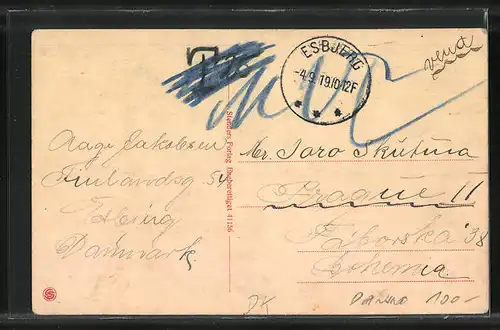 T
ESBJERG
-4.9.19.10-12F
vend
Aage Jakobsen
Finlandsg 54
Esbjerg
Danmark
Stenders Forlag Eneberettiget 41156
Mr. Jaro Skutina
Prague II
Táborska 38
Bohemia
DK
100-